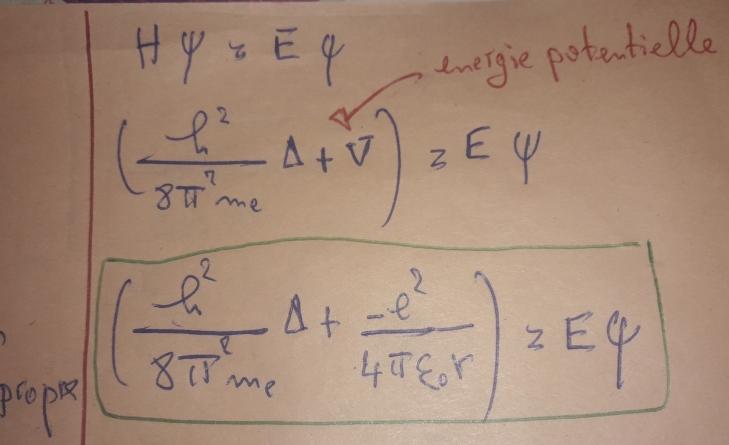 Hψ = Eψ
energie potentielle
(h²/8π²me Δ + V) = Eψ
(h²/8π²me Δ + -e²/4πε₀r) = Eψ
propre